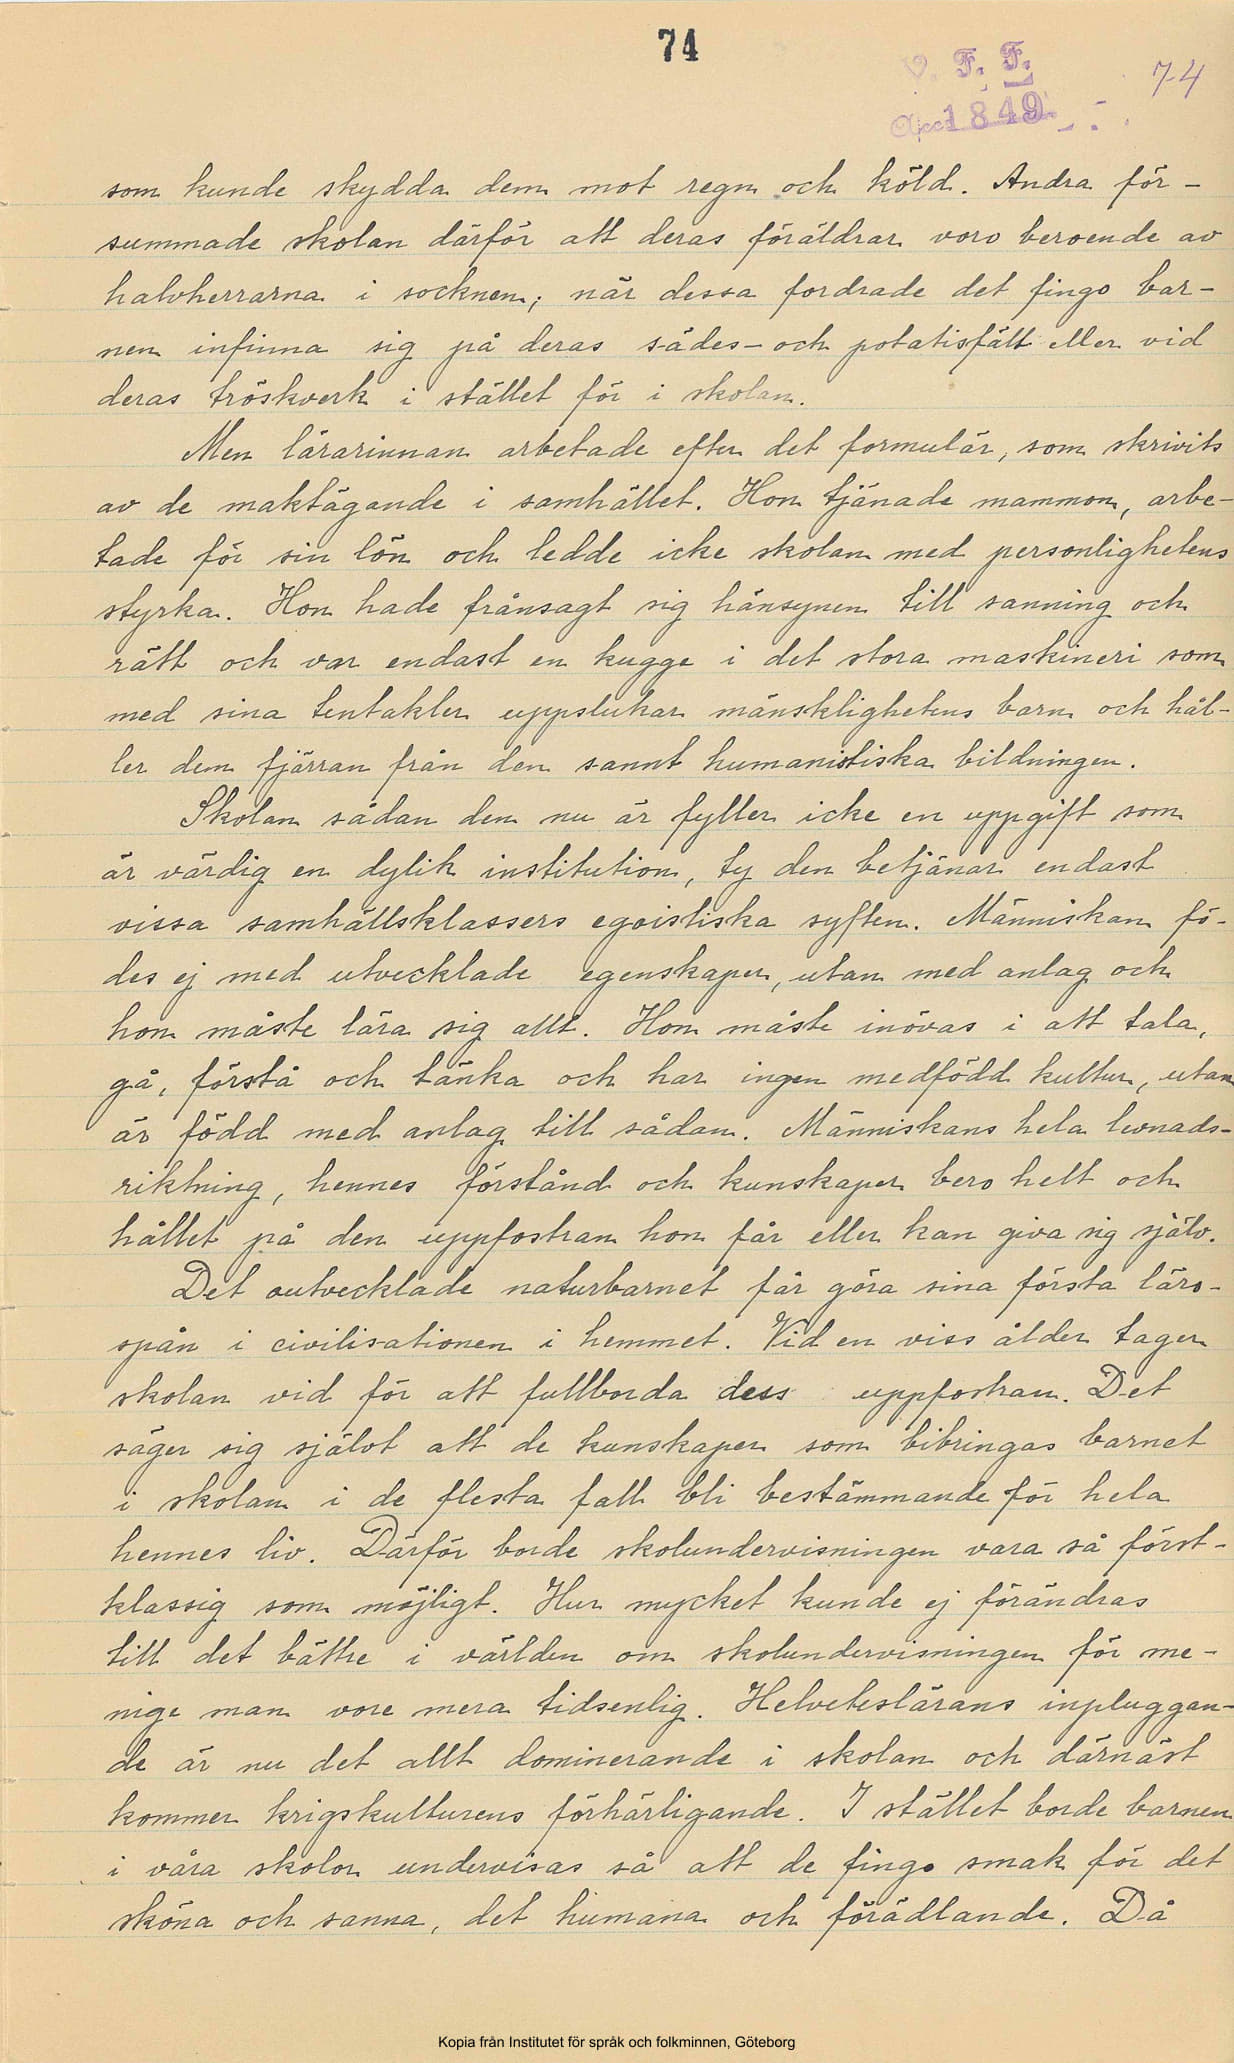 74
V. F. F.
74
Acc 1849
som kunde skydda dem mot regn och köld. Andra för-
summade skolan därför att deras föräldrar voro beroende av
halvherrarna i socknen; när dessa fordrade det fingo bar-
nen infinna sig på deras sädes- och potatisfält eller vid
deras tröskverk i stället för i skolan.
Men lärarinnan arbetade efter det formulär, som skrivits
av de maktägande i samhället. Hon tjänade mammon, arbe-
tade för sin lön och ledde icke skolan med personlighetens
styrka. Hon hade frånsagt sig hänsynen till sanning och
rätt och var endast en kugge i det stora maskineri som
med sina tentakler uppslukar mänsklighetens barn och hål-
ler dem fjärran från den sannt humanistiska bildningen.
Skolan sådan den nu är fyller icke en uppgift som
är värdig en dylik institution, ty den betjänar endast
vissa samhällsklassers egoistiska syften. Människan fö-
des ej med utvecklade egenskaper, utan med anlag och
hon måste lära sig allt. Hon måste inövas i att tala,
gå, förstå och tänka och har ingen medfödd kultur, utan
är född med anlag till sådan. Människans hela levnads-
riktning, hennes förstånd och kunskaper bero helt och
hållet på den uppfostran hon får eller kan giva sig själv.
Det outvecklade naturbarnet får göra sina första läro-
spån i civilisationen i hemmet. Vid en viss ålder tager
skolan vid för att fullborda dess uppfostran. Det
säger sig självt att de kunskaper som bibringas barnet
i skolan i de flesta fall bli bestämmande för hela
hennes liv. Därför borde skolundervisningen vara så först-
klassig som möjligt. Hur mycket kunde ej förändras
till det bättre i världen om skolundervisningen för me-
nige man vore mera tidsenlig. Helveteslärans inpluggan-
de är nu det allt dominerande i skolan och därnäst
kommer krigskulturens förhärligande. I stället borde barnen
i våra skolor undervisas så att de fingo smak för det
sköna och sanna, det humana och förädlande. Då
Kopia från Institutet för språk och folkminnen, Göteborg